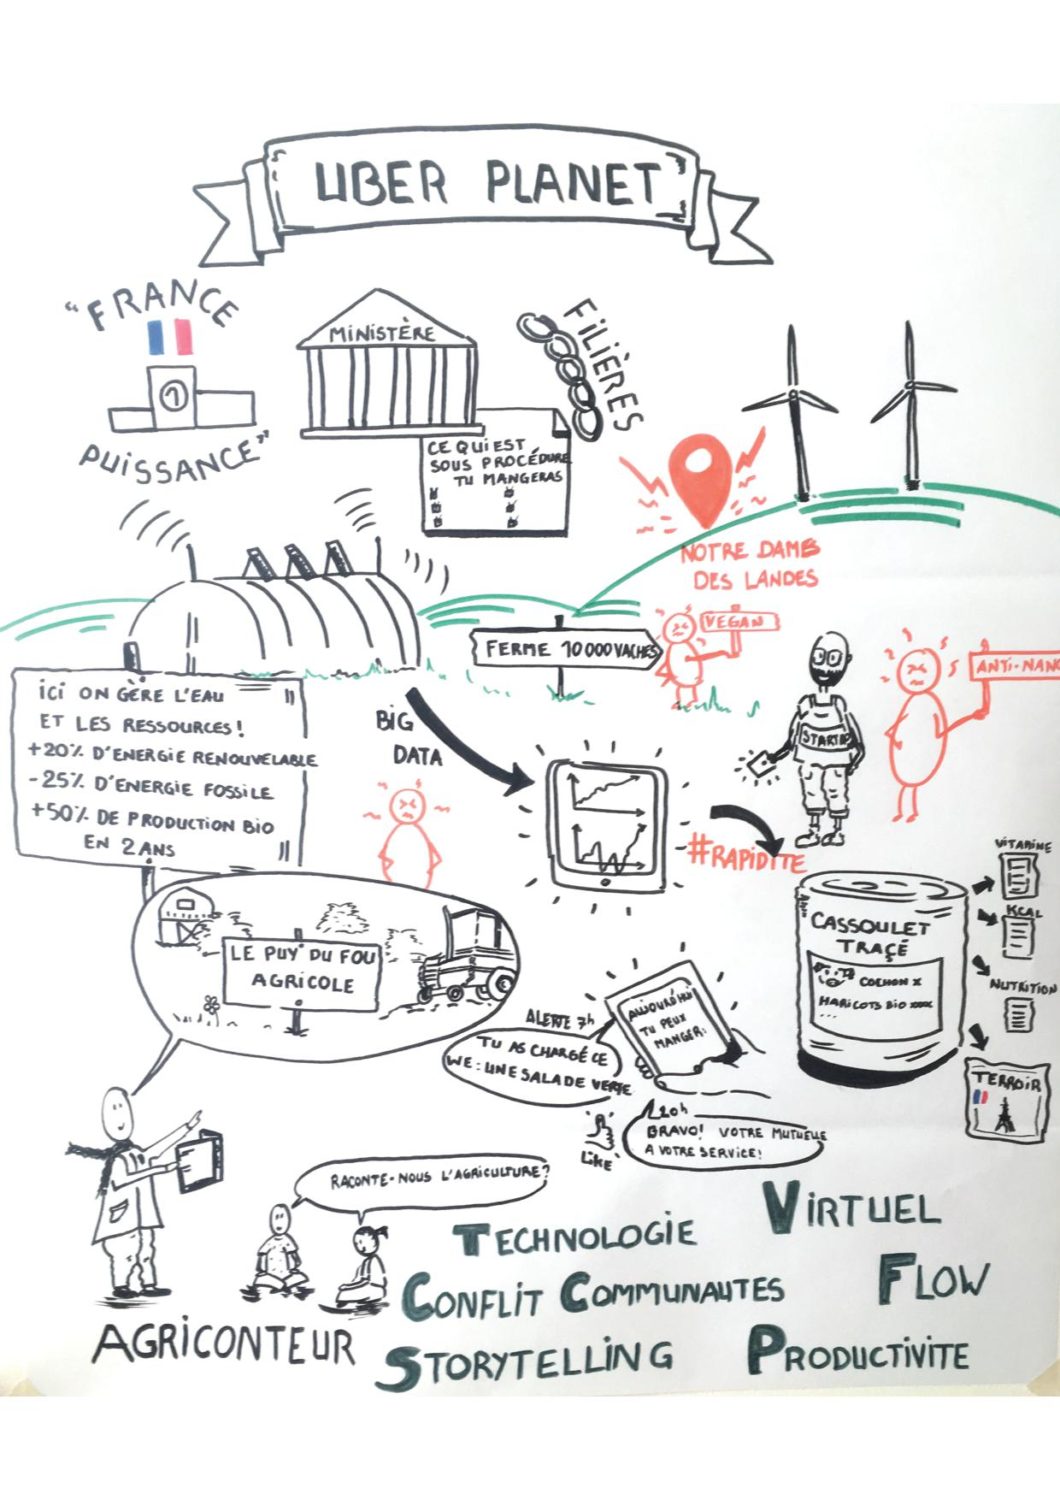 UBER PLANET
"FRANCE
1
PUISSANCE"
MINISTÈRE
FILIÈRES
CE QUI EST
SOUS PROCÉDURE
TU MANGERAS
NOTRE DAME
DES LANDES
VEGAN
FERME 10000 VACHES
ANTI-NANO
STARTUP
ICI ON GÈRE L'EAU
ET LES RESSOURCES!
+20% D'ENERGIE RENOUVELABLE
-25% D'ENERGIE FOSSILE
+50% DE PRODUCTION BIO
EN 2 ANS
BIG
DATA
#RAPIDITE
VITAMINE
KCAL
NUTRITION
TERROIR
CASSOULET
TRAÇÉ
COCHON X
HARICOTS BIO XXXX
...
LE PUY DU FOU
AGRICOLE
AUJOURD'HUI
TU PEUX
MANGER:
ALERTE 7h
TU AS CHARGÉ CE
WE: UNE SALADE VERTE
LIKE
120h
BRAVO! VOTRE MUTUELLE
A VOTRE SERVICE!
RACONTE-NOUS L'AGRICULTURE?
AGRICONTEUR
TECHNOLOGIE
VIRTUEL
CONFLIT COMMUNAUTES
FLOW
STORYTELLING
PRODUCTIVITE